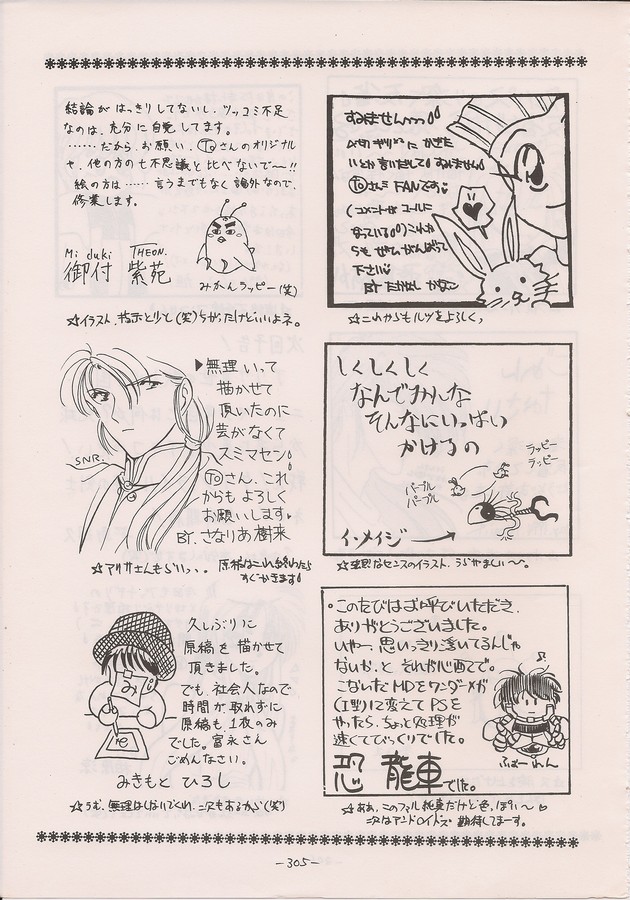 結論がはっきりしてないし、ツッコミ不足
なのは、充分に自覚してます。
……だから、お願い、Toさんのオリジナル
や、他の方の七不思議と比べないで〜!!
絵の方は……言うまでもなく論外なので、
修業します。
Mi duki THEON.
御付 紫苑
みかんラッピー(笑)
☆イラスト、(笑)ちゃったけどいいよネ。
すみませんっっ
いとか言いだして すみません
Toさんの FANです
(コメントが コールに
なっている) これか
らも ぜひがんばって
下さい
BY
☆これからもルツをよろしく、
▶無理いって
描かせて
頂いたのに
芸がなくて
スミマセン
Toさん、これ
からもよろしく
お願いします
BY. さなりあ樹来
SNR.
☆アリサさんもらいっ、、原稿はこれ終わったら
すぐかきます
しくしくしく
なんでみんな
そんなにいっぱい
かけるの
ラッピー
ラッピー
パープル
パープル
イメージ→
☆なセンスのイラスト、うらやましい〜。
久しぶりに
原稿を描かせて
頂きました。
でも、社会人なので
時間が取れずに
原稿も、1枚のみ
でした。富永さん
ごめんなさい。
みきもと ひろし
☆うむ、無理はしないでくれ、二次もあるから(笑)
・このたびはお呼でいただき、
ありがとうございました。
いやー、思いっきり浮いてるんじゃ
ないか、と それが心配で。
こないだ MDをワンダーメガ
(I型)に変えて PSを
やったら、ちょっと処理が
速くてびっくりでした。
恐 龍車でした。
ふぉーれん
☆ああ、このフォルは純真だけど色っぽい〜♡
次はアンドロイドズ 期待してまーす。
-305-